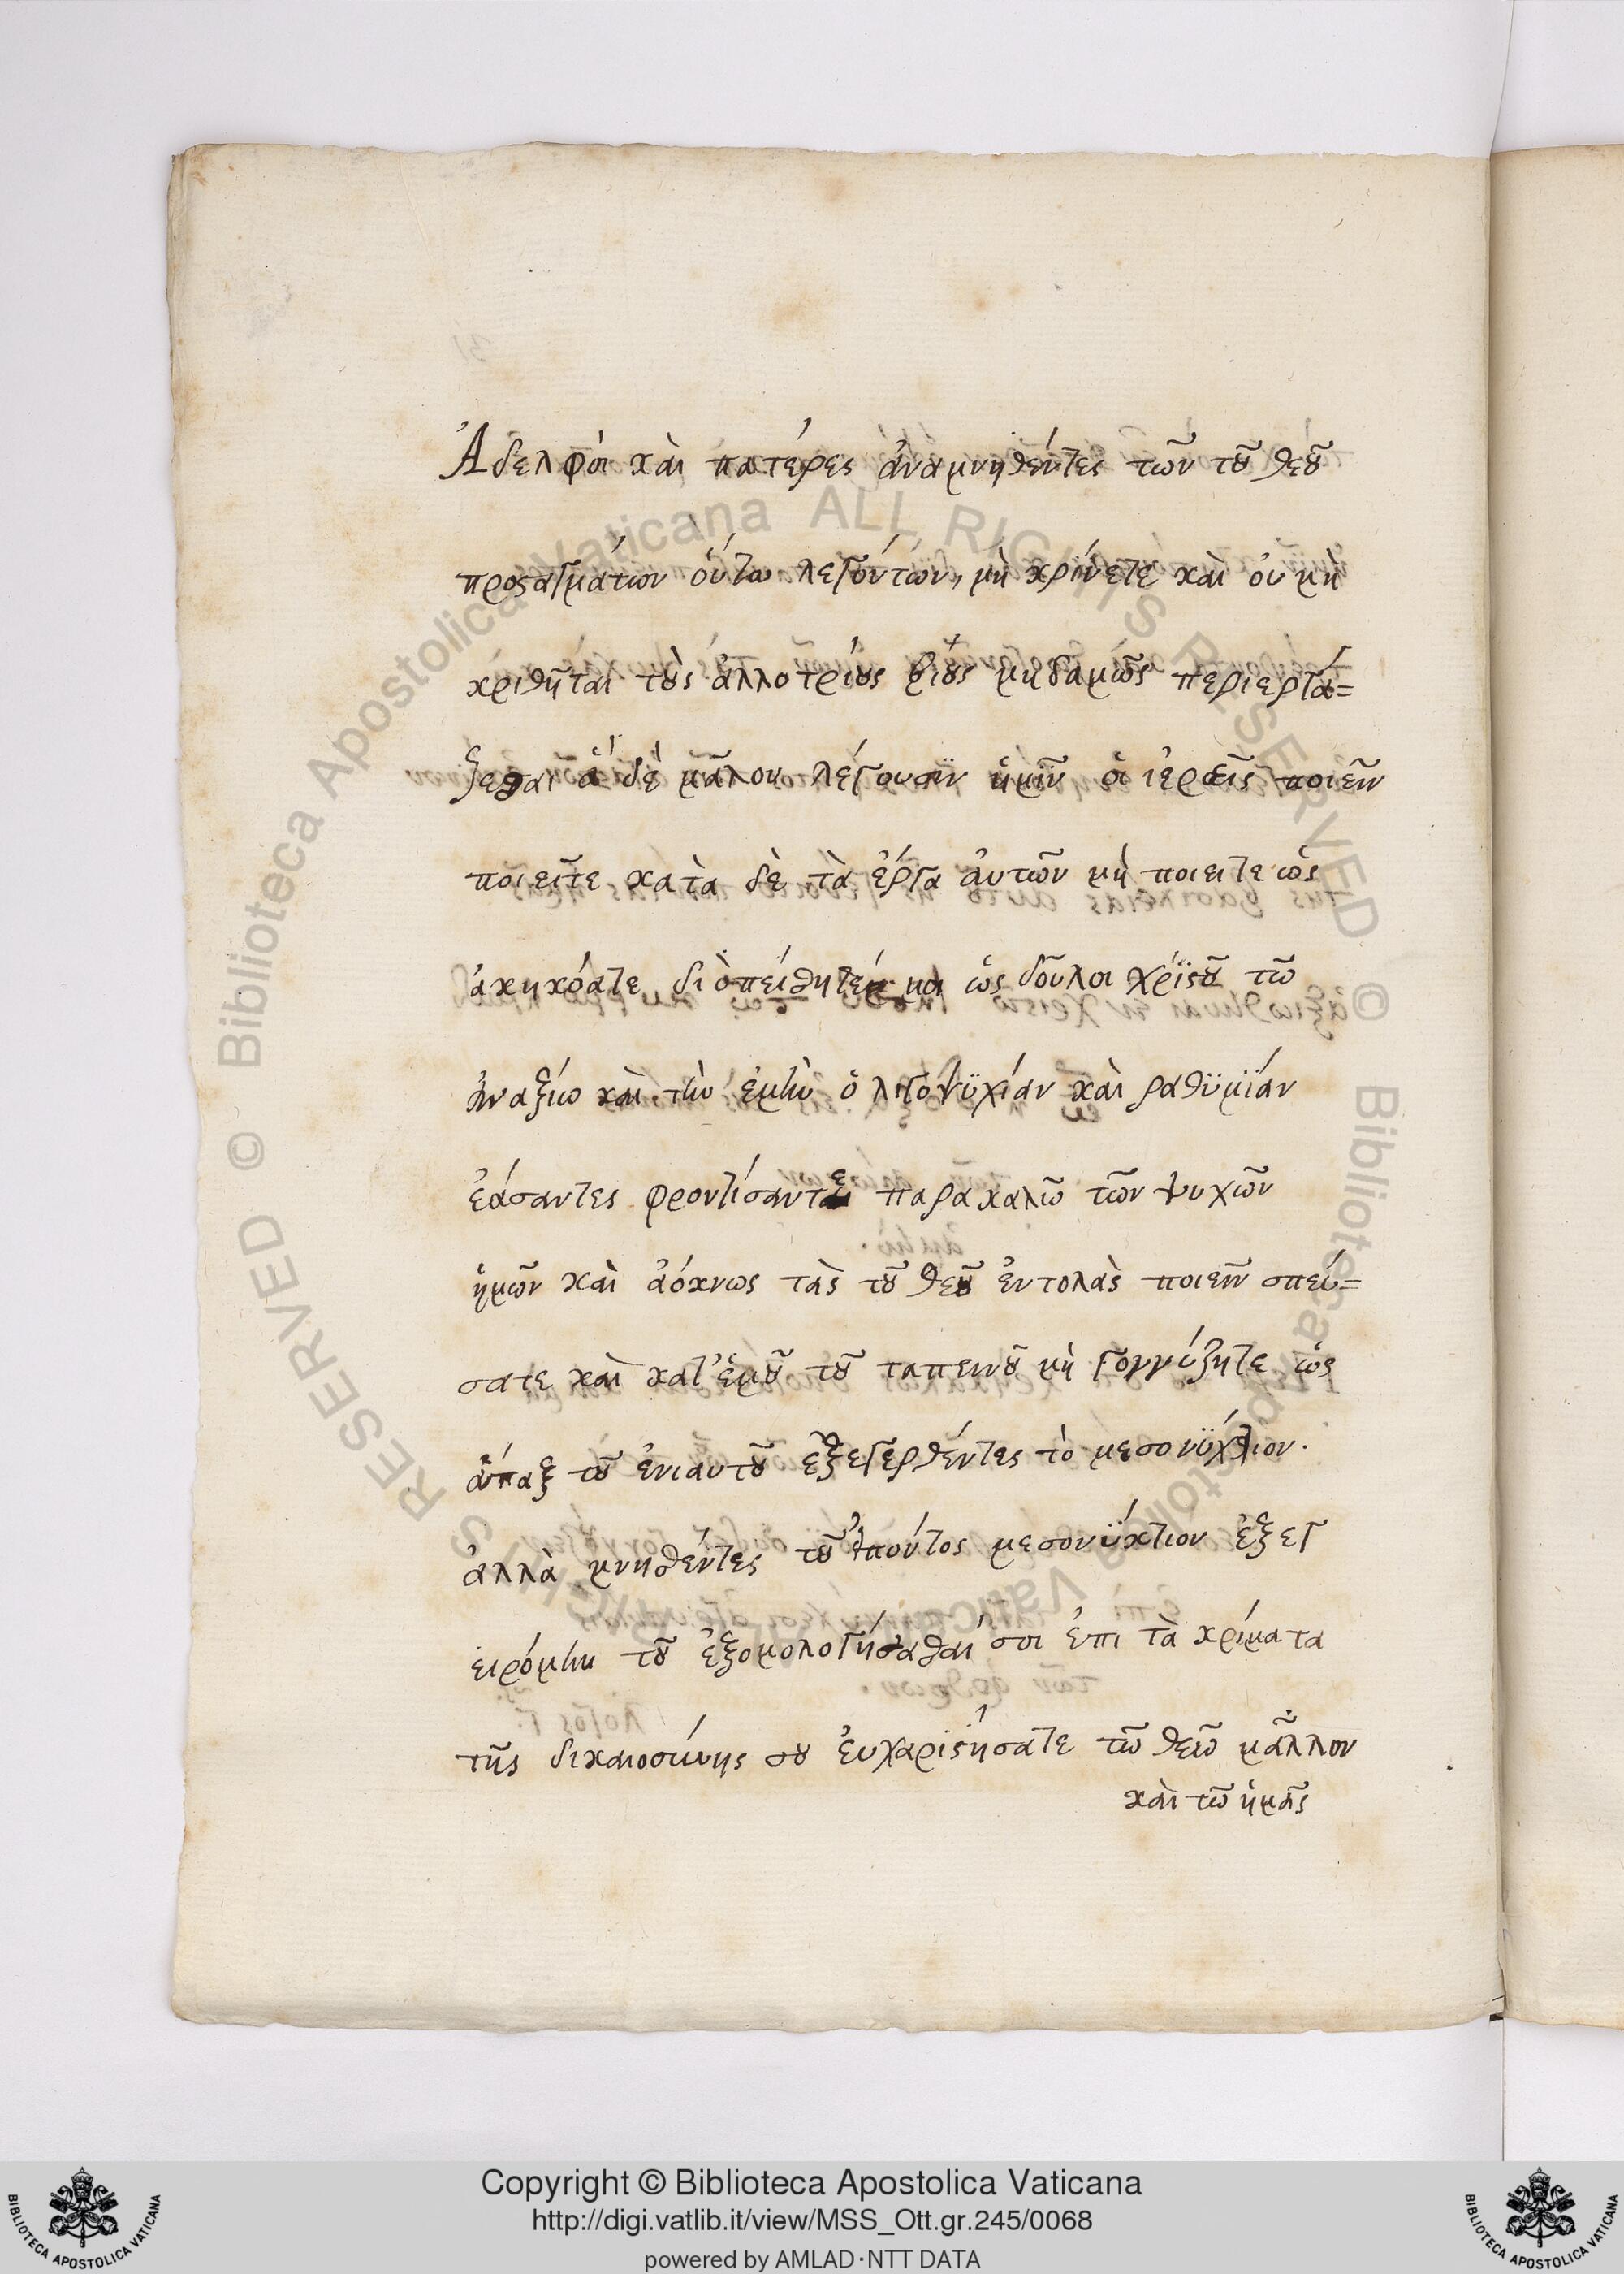 Ἀδελφόι κὰι πατέρες ἀναμνηθέντες τῶν τοῦ θεοῦ
προσταγμάτων ὁύτω λεγόντων, μὴ κρίνετε κὰι ὀυ μὴ
κριθῆται τοὺς ἀλλοτρίους βίους μηδαμῶς περιεργά=
ξεσθαι ἁ δὲ μᾶλον λέγουσϊν ἡμῖν ὁι ἱερεῖς ποιεῖν
ποιεῖτε κατὰ δὲ τὰ ἔργα ἀυτῶν μὴ ποιειτε ὡς
ἀκηκόατε διὸ πείθητέ μοι ὡς δοῦλοι χρϊστοῦ τῶ
ἀναξίω κὰι τὴν ἐμὴν ὀλιγοψϋχίαν κὰι ραθϋμϊάν
ἐάσαντες φροντίσαντες παρακαλῶ τῶν ψυχῶν
ἡμῶν κὰι ἀόκνως τὰς τοῦ θεοῦ ἐντολὰς ποιεῖν σπεύ=
σατε κὰι κατ' ἐμοῦ τοῦ ταπεινοῦ μὴ γογγύζητε ὡς
ἅπαξ τοῦ ἐνιαυτοῦ ἐξεγερθέντες τὸ μεσονϋκτιον.
ἀλλὰ μνηθέντες τοῦ ἐιπόντος μεσονϋκτιον ἐξεγ
ειρόμην τοῦ ἐξομολογήσασθαί σοι ἐπι τὰ κρίματα
τῆς δικαιοσύνης σου ἐυχαριστήσατε τῶ θεῶ μᾶλλον
κὰι τῶ ἡμᾶς
Copyright © Biblioteca Apostolica Vaticana
http://digi.vatlib.it/view/MSS_Ott.gr.245/0068
powered by AMLAD·NTT DATA
BIBLIOTECA APOSTOLICA VATICANA
BIBLIOTECA APOSTOLICA VATICANA